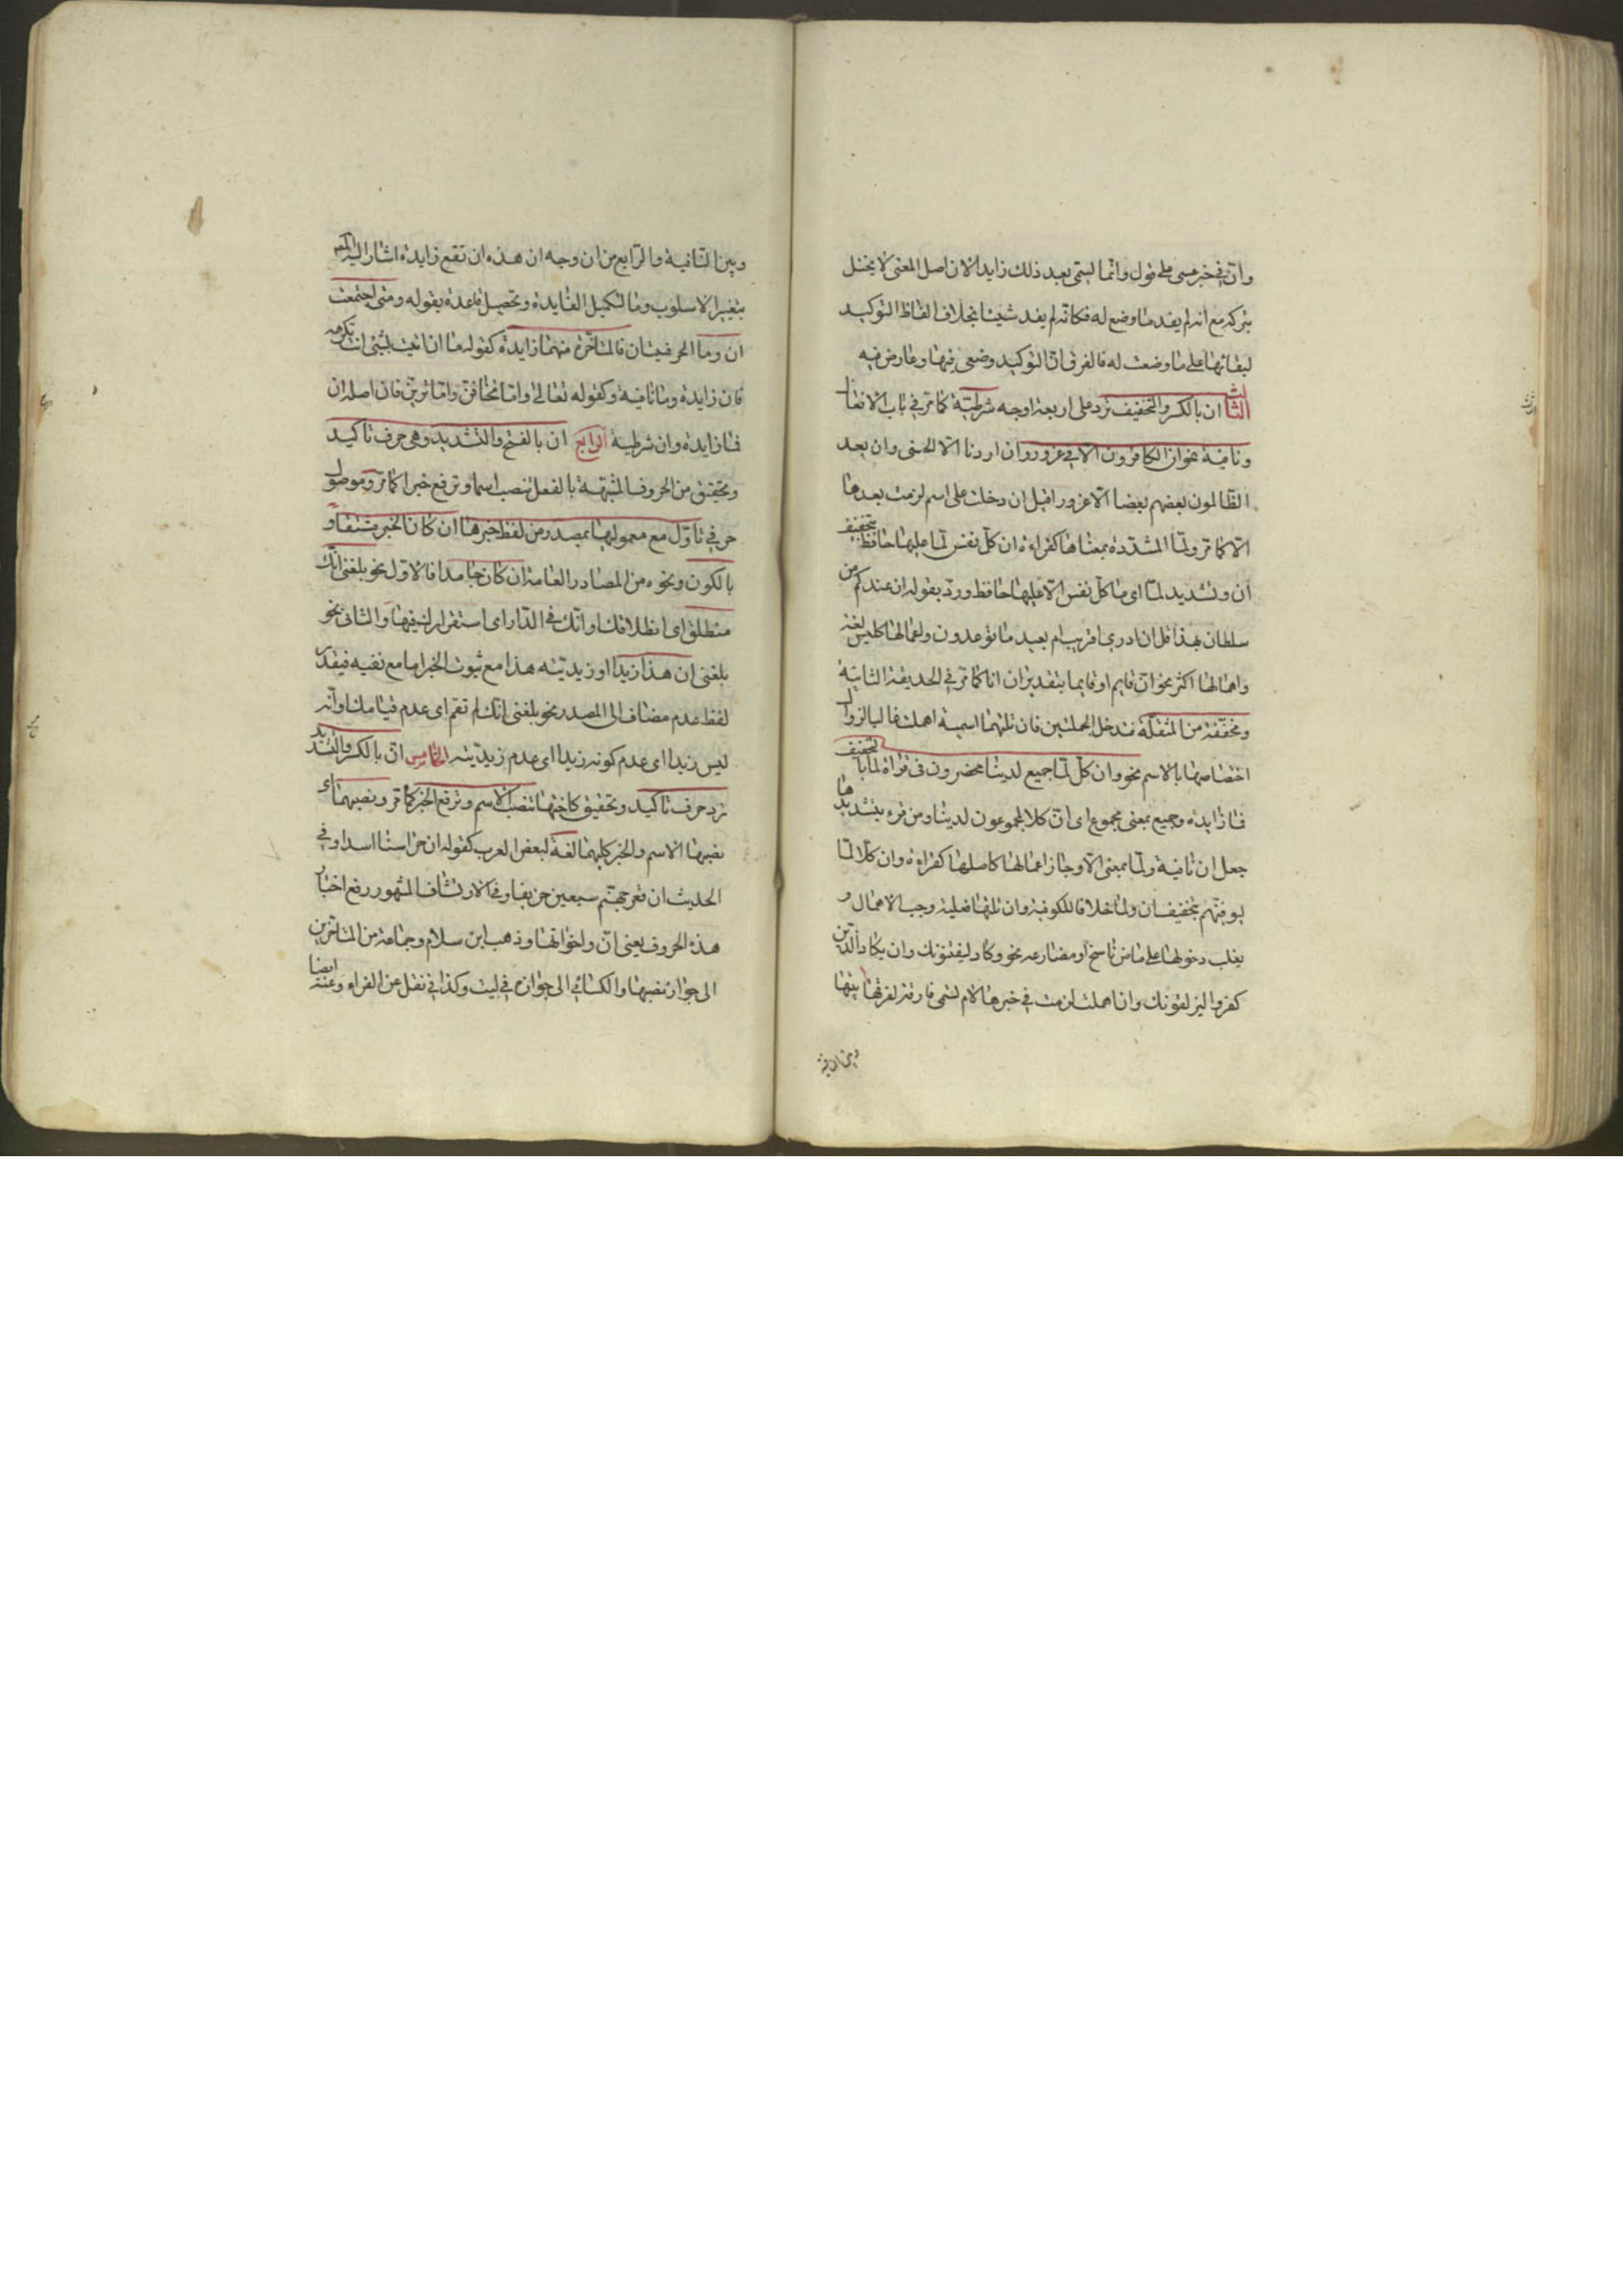 وان في خبر عسى على قول وانما لستمى بعد ذلك زايدا لان اصل المعنى لا يختل
بتركه مع انه لم يفد ما وضع له فكانه لم يفد شيئا بخلاف الفاظ التوكيد
لبقائها على ما وضعت له فالفرق ان التوكيد وضعى فيها وعارض فيه
الثالث ان بالكسر والتخفيف ترد على اربعة اوجه شرطية كما مر في باب الافعال
ونافية نحو ان الكافرون الا في غرور وان اردنا الا الحسنى وان بعد
الظالمون بعضهم بعضا الا غرورا قيل ان دخلت على اسم لزمت بعدها
الا كما مر ولما المشددة بمعناها كقراءة ان كل نفس لما عليها حافظ بتخفيف
ان وتشديد لما اى ما كل نفس الا عليها حافظ ورد بقوله ان عندكم من
سلطان بهذا قل ان ادرى اقريب ام بعيد ما توعدون واعمالها كليس لغة
واهمالها اكثر نحو ان قايم او قايما بتقدير ان انا كما مر في الحديقة الثانية
ومخففة من المثقلة فتدخل الجملتين فان تلتهما اسمية اهملت غالبا لزوال
اختصاصها بالاسم نحو وان كل لما جميع لدينا محضرون فى قراة لما بالتخفيف
فما زايدة وجميع بمعنى مجموع اى ان كلا لمجموعون لدينا ومن قرء بتشديدها
جعل ان نافية ولما بمعنى الا وجاز اعمالها كاصلها كقراءة وان كلا لما
ليوفينهم بتخفيف ان ولما خلافا للكوفية وان تلتها فعلية وجب الاهمال و
يغلب دخولها على ماض ناسخ او مضارعه نحو وكادوا ليفتنونك وان يكاد الذين
كفروا ليزلقونك وان اهملت لزمت في خبرها لام تسمى فارقة لفرقها بينها
وبين النافية
وبين النافية والرابع من ان وجه ان هذه ان تقع زايدة اشار اليه المص
بتغير الاسلوب وما لتكميل الفايدة وتحصيل قاعدة بقوله ومتى اجتمعت
ان وما الحرفيتان فالمتاخرة منهما زايدة كقوله ما ان اتيت بشئ انت تكرهه
فان زايدة وما نافية وكقوله تعالى واما تخافن واما ترين فان اصله ان
فما زايدة وان شرطية الرابع ان بالفتح والتشديد وهى حرف تاكيد
وتحقيق من الحروف المشبهة بالفعل تنصب اسما وترفع خبرا كما مر وموصول
حرفي تاول مع معموليها بمصدر من لفظ خبرها ان كان الخبر مشتقا و
بالكون ونحوه من المصادر العامة ان كان جامدا فالاول نحو بلغنى انك
منطلق اى انطلاقك او انك في الدار اى استقرارك فيها والثانى نحو
بلغنى ان هذا زيد اى زيديته هذا مع ثبوت الخبر اما مع نفيه فيقدر
لفظ عدم مضاف الى المصدر نحو بلغنى انك لم تقم اى عدم قيامك او انه
ليس زيدا اى عدم كونه زيدا اى عدم زيديته الخامس ان بالكسر والتشديد
ترد حرف تاكيد وتحقيق كاختها تنصب الاسم وترفع الخبر كما مر ونصبهما اى
نصبها الاسم والخبر كليهما لغة لبعض العرب كقوله ان حراسنا اسدا وفي
الحديث ان قعر جهنم سبعين خريفا وفي الارتشاف المشهور رفع اخبار
هذه الحروف يعنى ان واخواتها وذهب ابن سلام وجماعة من المتاخرين
الى جواز نصبها والكسائي الى جوازه في ليت وكذا في نقل عن الفراء وعنه ايضا